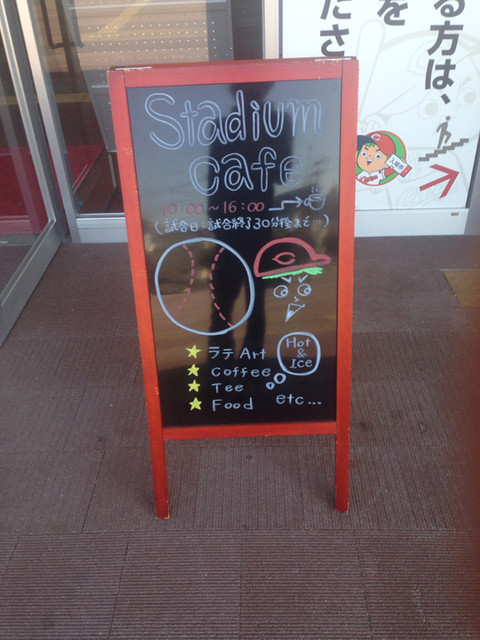 る方は、
を
ださ
Stadium
cafe
10:00～16:00
(試合日:試合終了30分後まで…)
C
★ ラテ Art
★ Coffee
★ Tee
★ Food
Hot
&
Ice
etc...